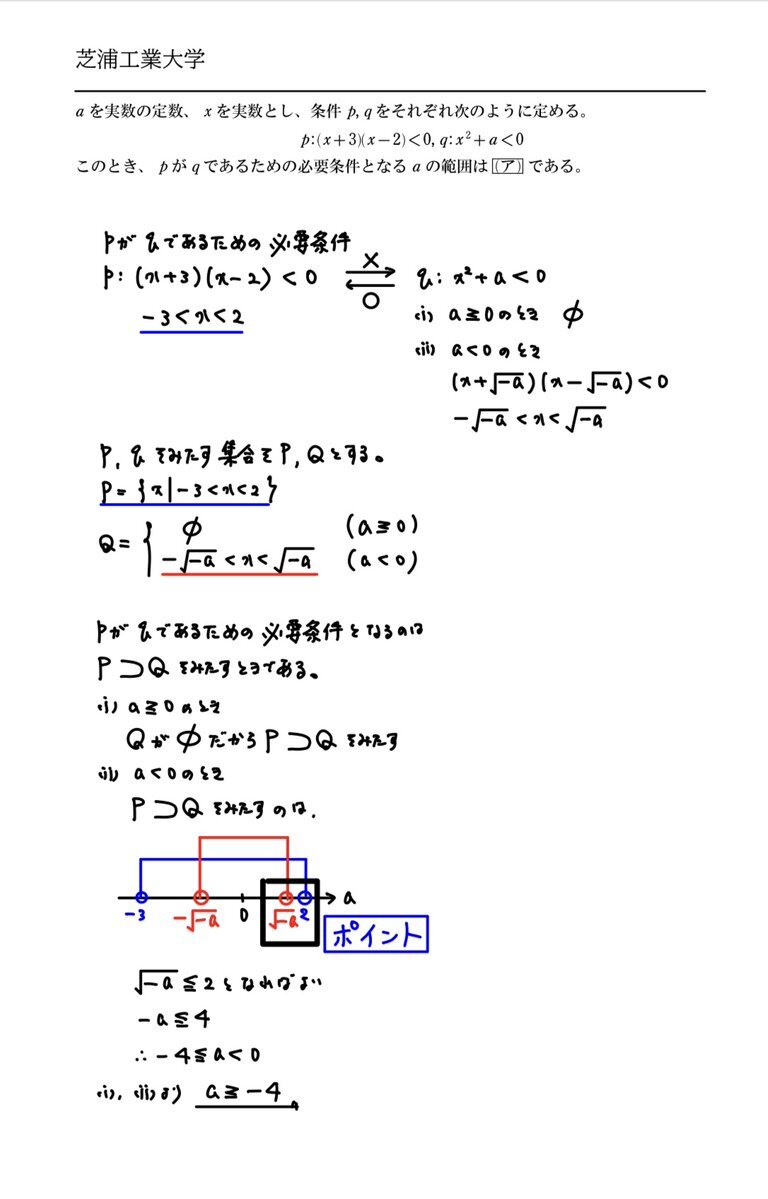 芝浦工業大学
aを実数の定数、xを実数とし、条件p, qをそれぞれ次のように定める。
p:(x+3)(x−2)<0, q:x²+a<0
このとき、pがqであるための必要条件となるaの範囲は(ア)である。
pがqであるための必要条件
p:(x+3)(x−2)<0 ×⇄○ q: x²+a<0
−3<x<2
(i) a≧0のとき φ
(ii) a<0のとき
(x+√−a)(x−√−a)<0
−√−a<x<√−a
P, qをみたす集合をP, Qとする。
P={x|−3<x<2}
Q={ φ (a≧0)
−√−a<x<√−a (a<0)
Pがqであるための必要条件となるのは
P⊃Qをみたすときである。
(i) a≧0のとき
QがφだからP⊃Qをみたす
(ii) a<0のとき
P⊃Qをみたすのは.
−3 −√−a 0 √−a 2 a
ポイント
√−a≦2となればよい
−a≦4
∴−4≦a<0
(i), (ii)より a≧−4